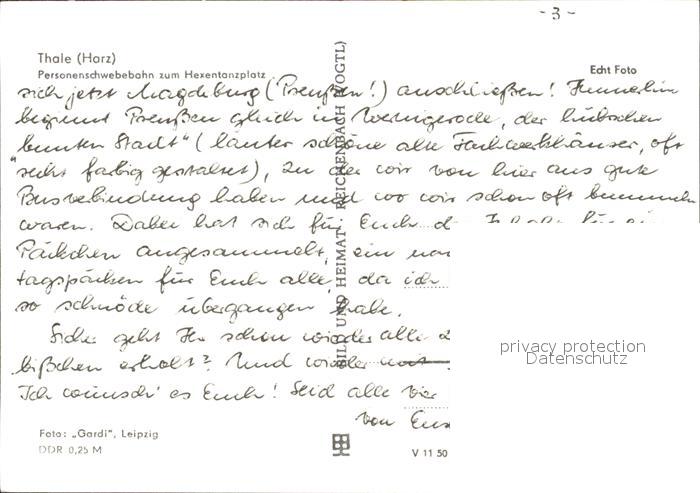 - 3 -
Thale (Harz)
Personenschwebebahn zum Hexentanzplatz
Echt Foto
sich jetzt Magdeburg (Preußen!) anschließen! Immerhin
beginnt Preußen gleich in Wernigerode, der hübschen
„bunten Stadt“ (lauter schöne alte Fachwerkhäuser, oft
recht farbig gestaltet), zu der wir von hier aus gute
Busverbindung haben und wo wir schon oft bummeln
waren. Dabei hat sich für Euch
Päckchen angesammelt, ein
tagspäcken für Euch alle, da ich
so schnöde übergangen habe.
Sicher geht Ihr schon wieder alle
bißchen erholt? Und wieder
Ich wünsch' es Euch! Seid alle vier
von Eurer
BILD UND HEIMAT REICHENBACH (VOGTL)
privacy protection
Datenschutz
Foto: „Gardi“, Leipzig
DDR 0,25 M
V 11 50